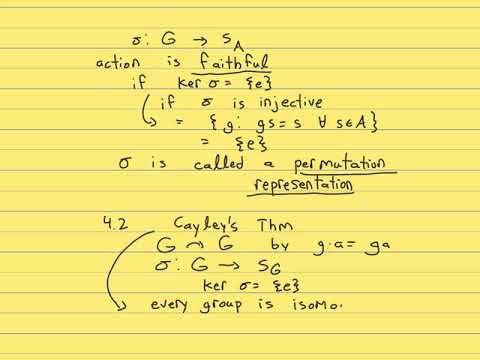 σ: G → S_A
action is faithful
if ker σ = {e}
if σ is injective
= {g: gs = s ∀ s∈A}
= {e}
σ is called a permutation
representation
4.2 Cayley's Thm
G ↷ G by g·a = ga
σ: G → S_G
ker σ = {e}
every group is isomo